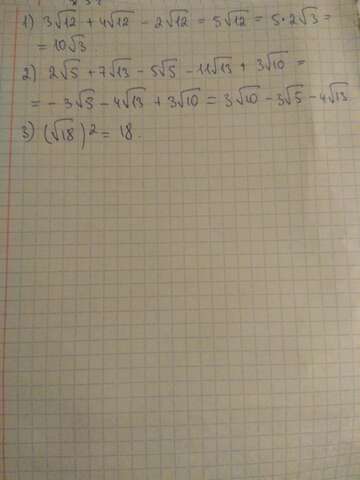 1) 3√12 + 4√12 - 2√12 = 5√12 = 5·2√3 =
= 10√3
2) 2√5 + 7√13 - 5√5 - 11√13 + 3√10 =
= - 3√5 - 4√13 + 3√10 = 3√10 - 3√5 - 4√13
3) (√18)² = 18.